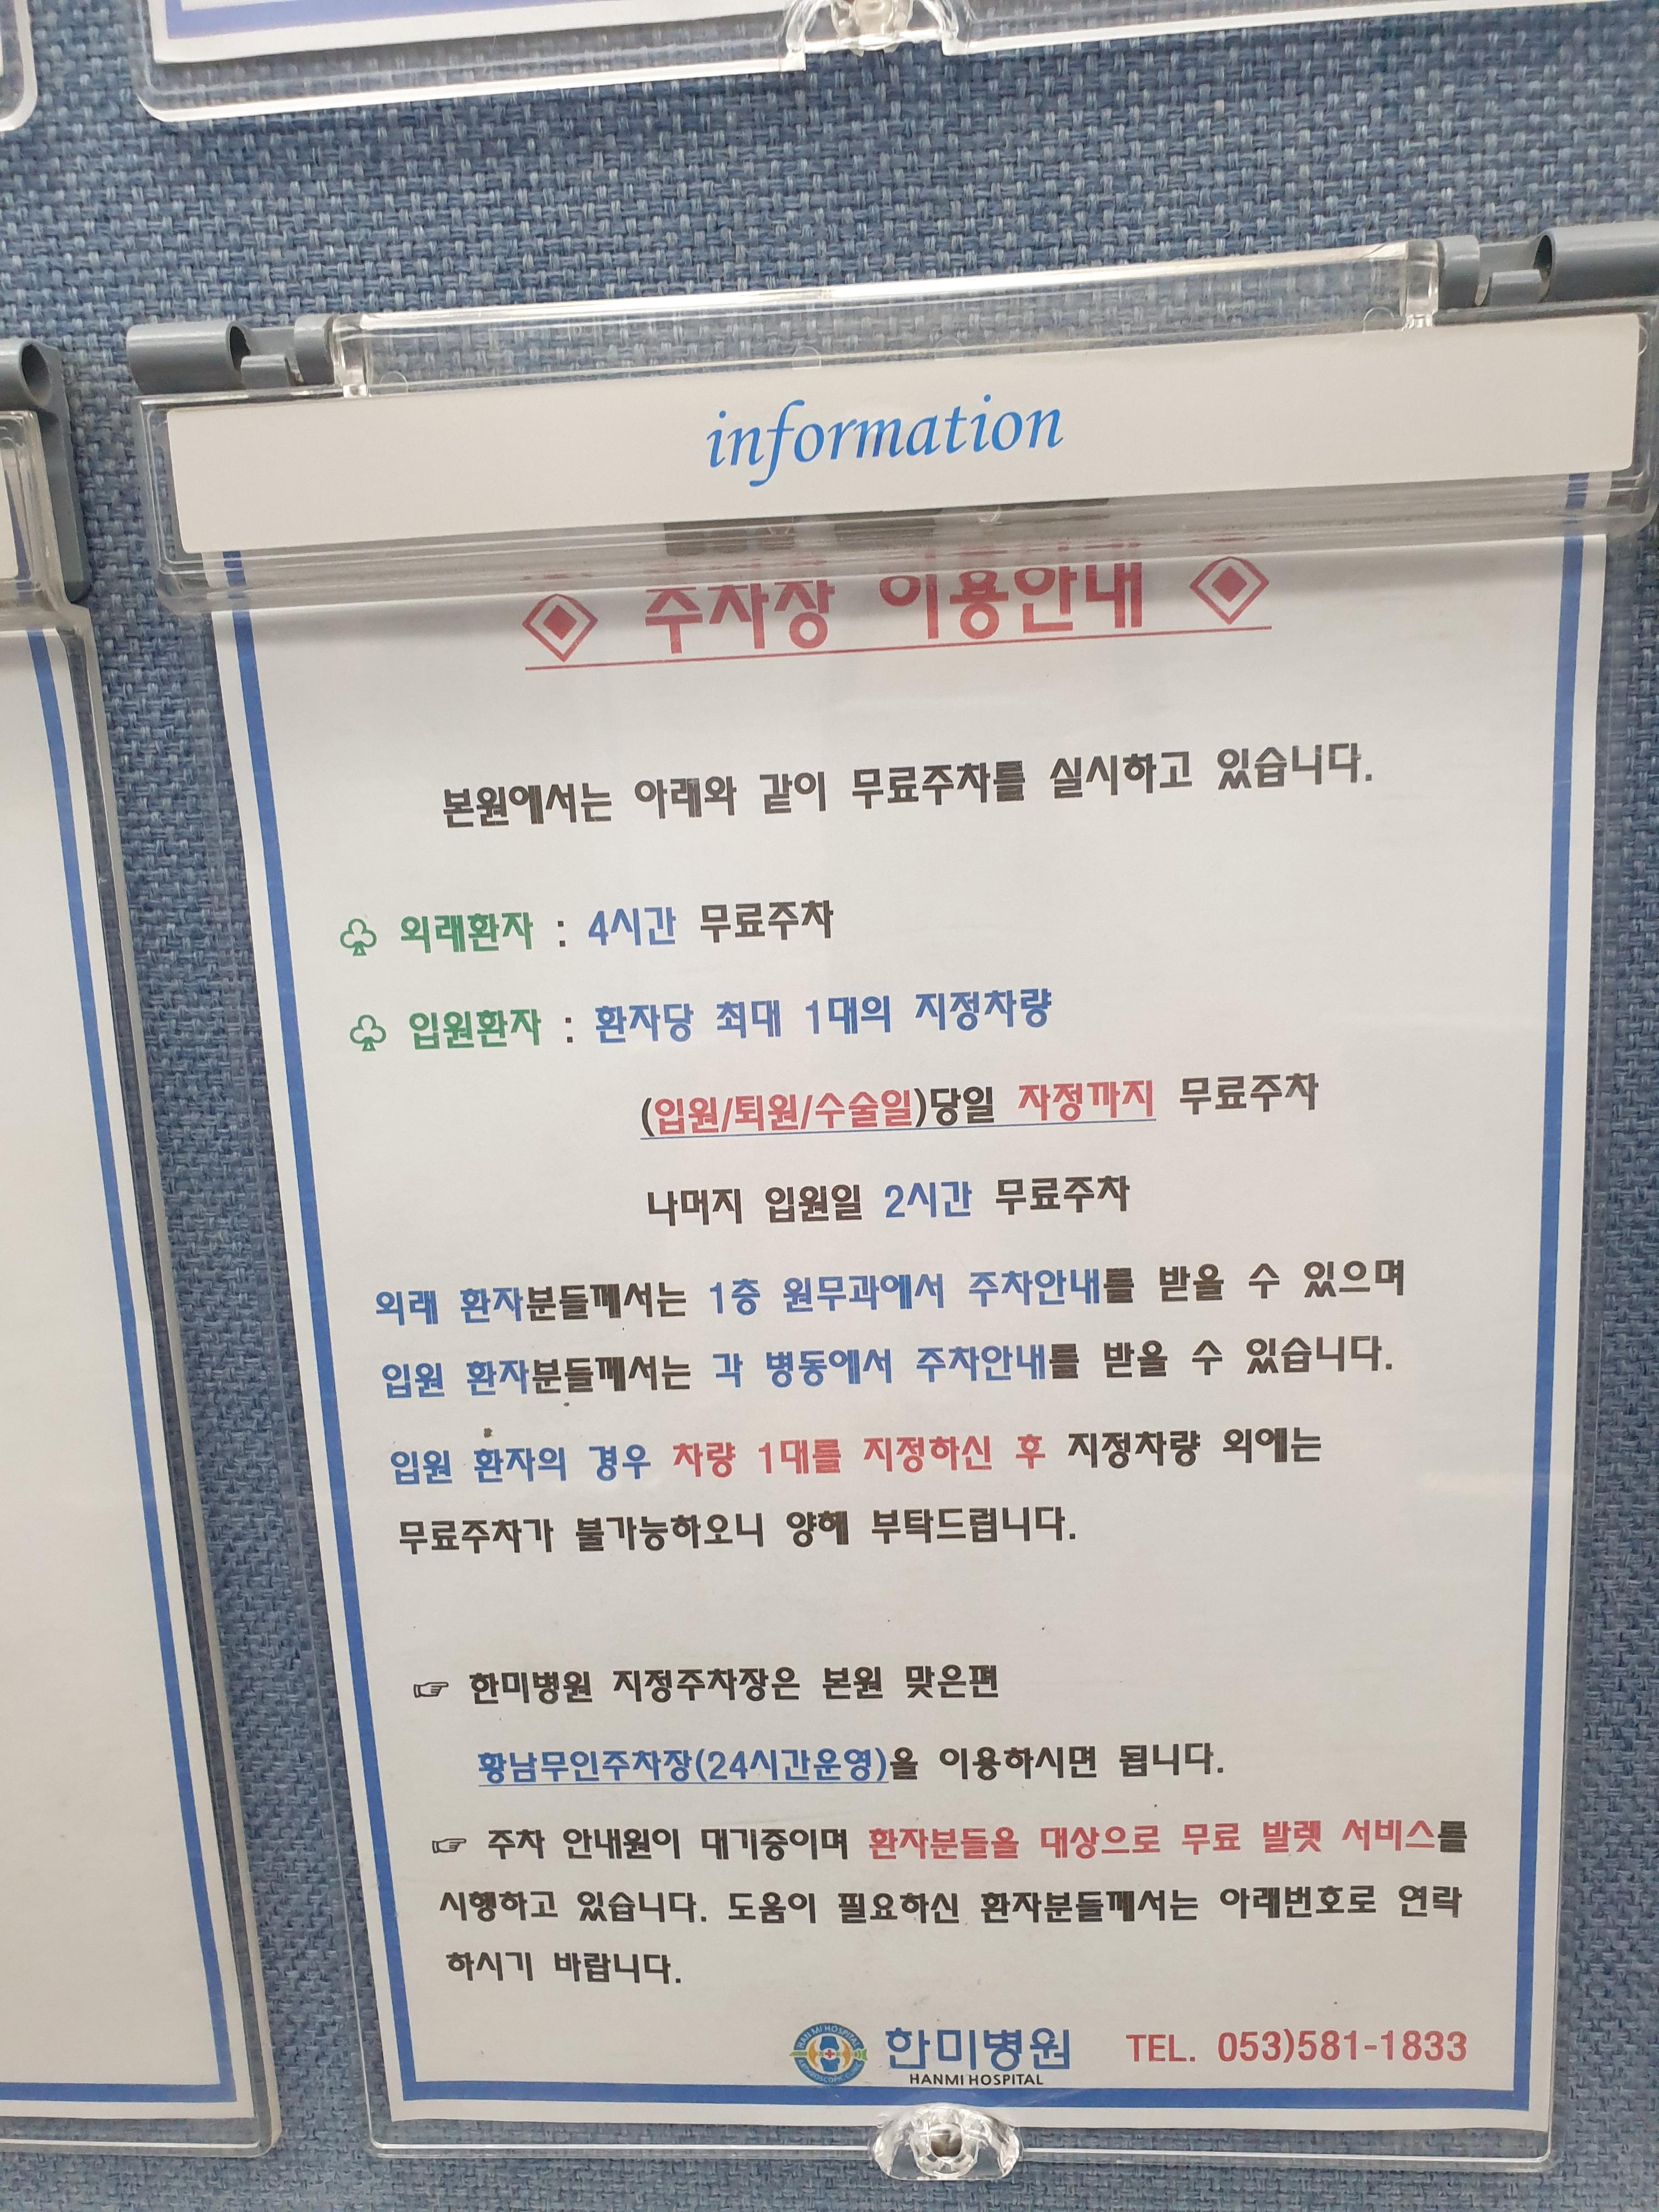 information
◈ 주차장 이용안내 ◈
본원에서는 아래와 같이 무료주차를 실시하고 있습니다.
♧ 외래환자 : 4시간 무료주차
♧ 입원환자 : 환자당 최대 1대의 지정차량
(입원/퇴원/수술일)당일 자정까지 무료주차
나머지 입원일 2시간 무료주차
외래 환자분들께서는 1층 원무과에서 주차안내를 받을 수 있으며
입원 환자분들께서는 각 병동에서 주차안내를 받을 수 있습니다.
입원 환자의 경우 차량 1대를 지정하신 후 지정차량 외에는
무료주차가 불가능하오니 양해 부탁드립니다.
☞ 한미병원 지정주차장은 본원 맞은편
황남무인주차장(24시간운영)을 이용하시면 됩니다.
☞ 주차 안내원이 대기중이며 환자분들을 대상으로 무료 발렛 서비스를
시행하고 있습니다. 도움이 필요하신 환자분들께서는 아래번호로 연락
하시기 바랍니다.
한미병원 TEL. 053)581-1833
HANMI HOSPITAL